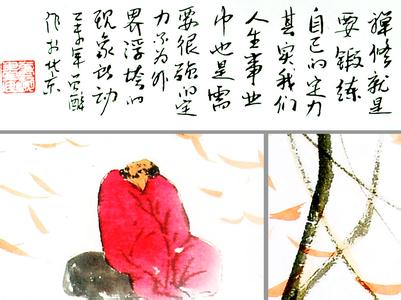 禅修就是
要锻练
自己的定力
其实我们
人生事业
中也是需
要很强的定
力不为外
界浮垮的
现象所动
年
作于北京